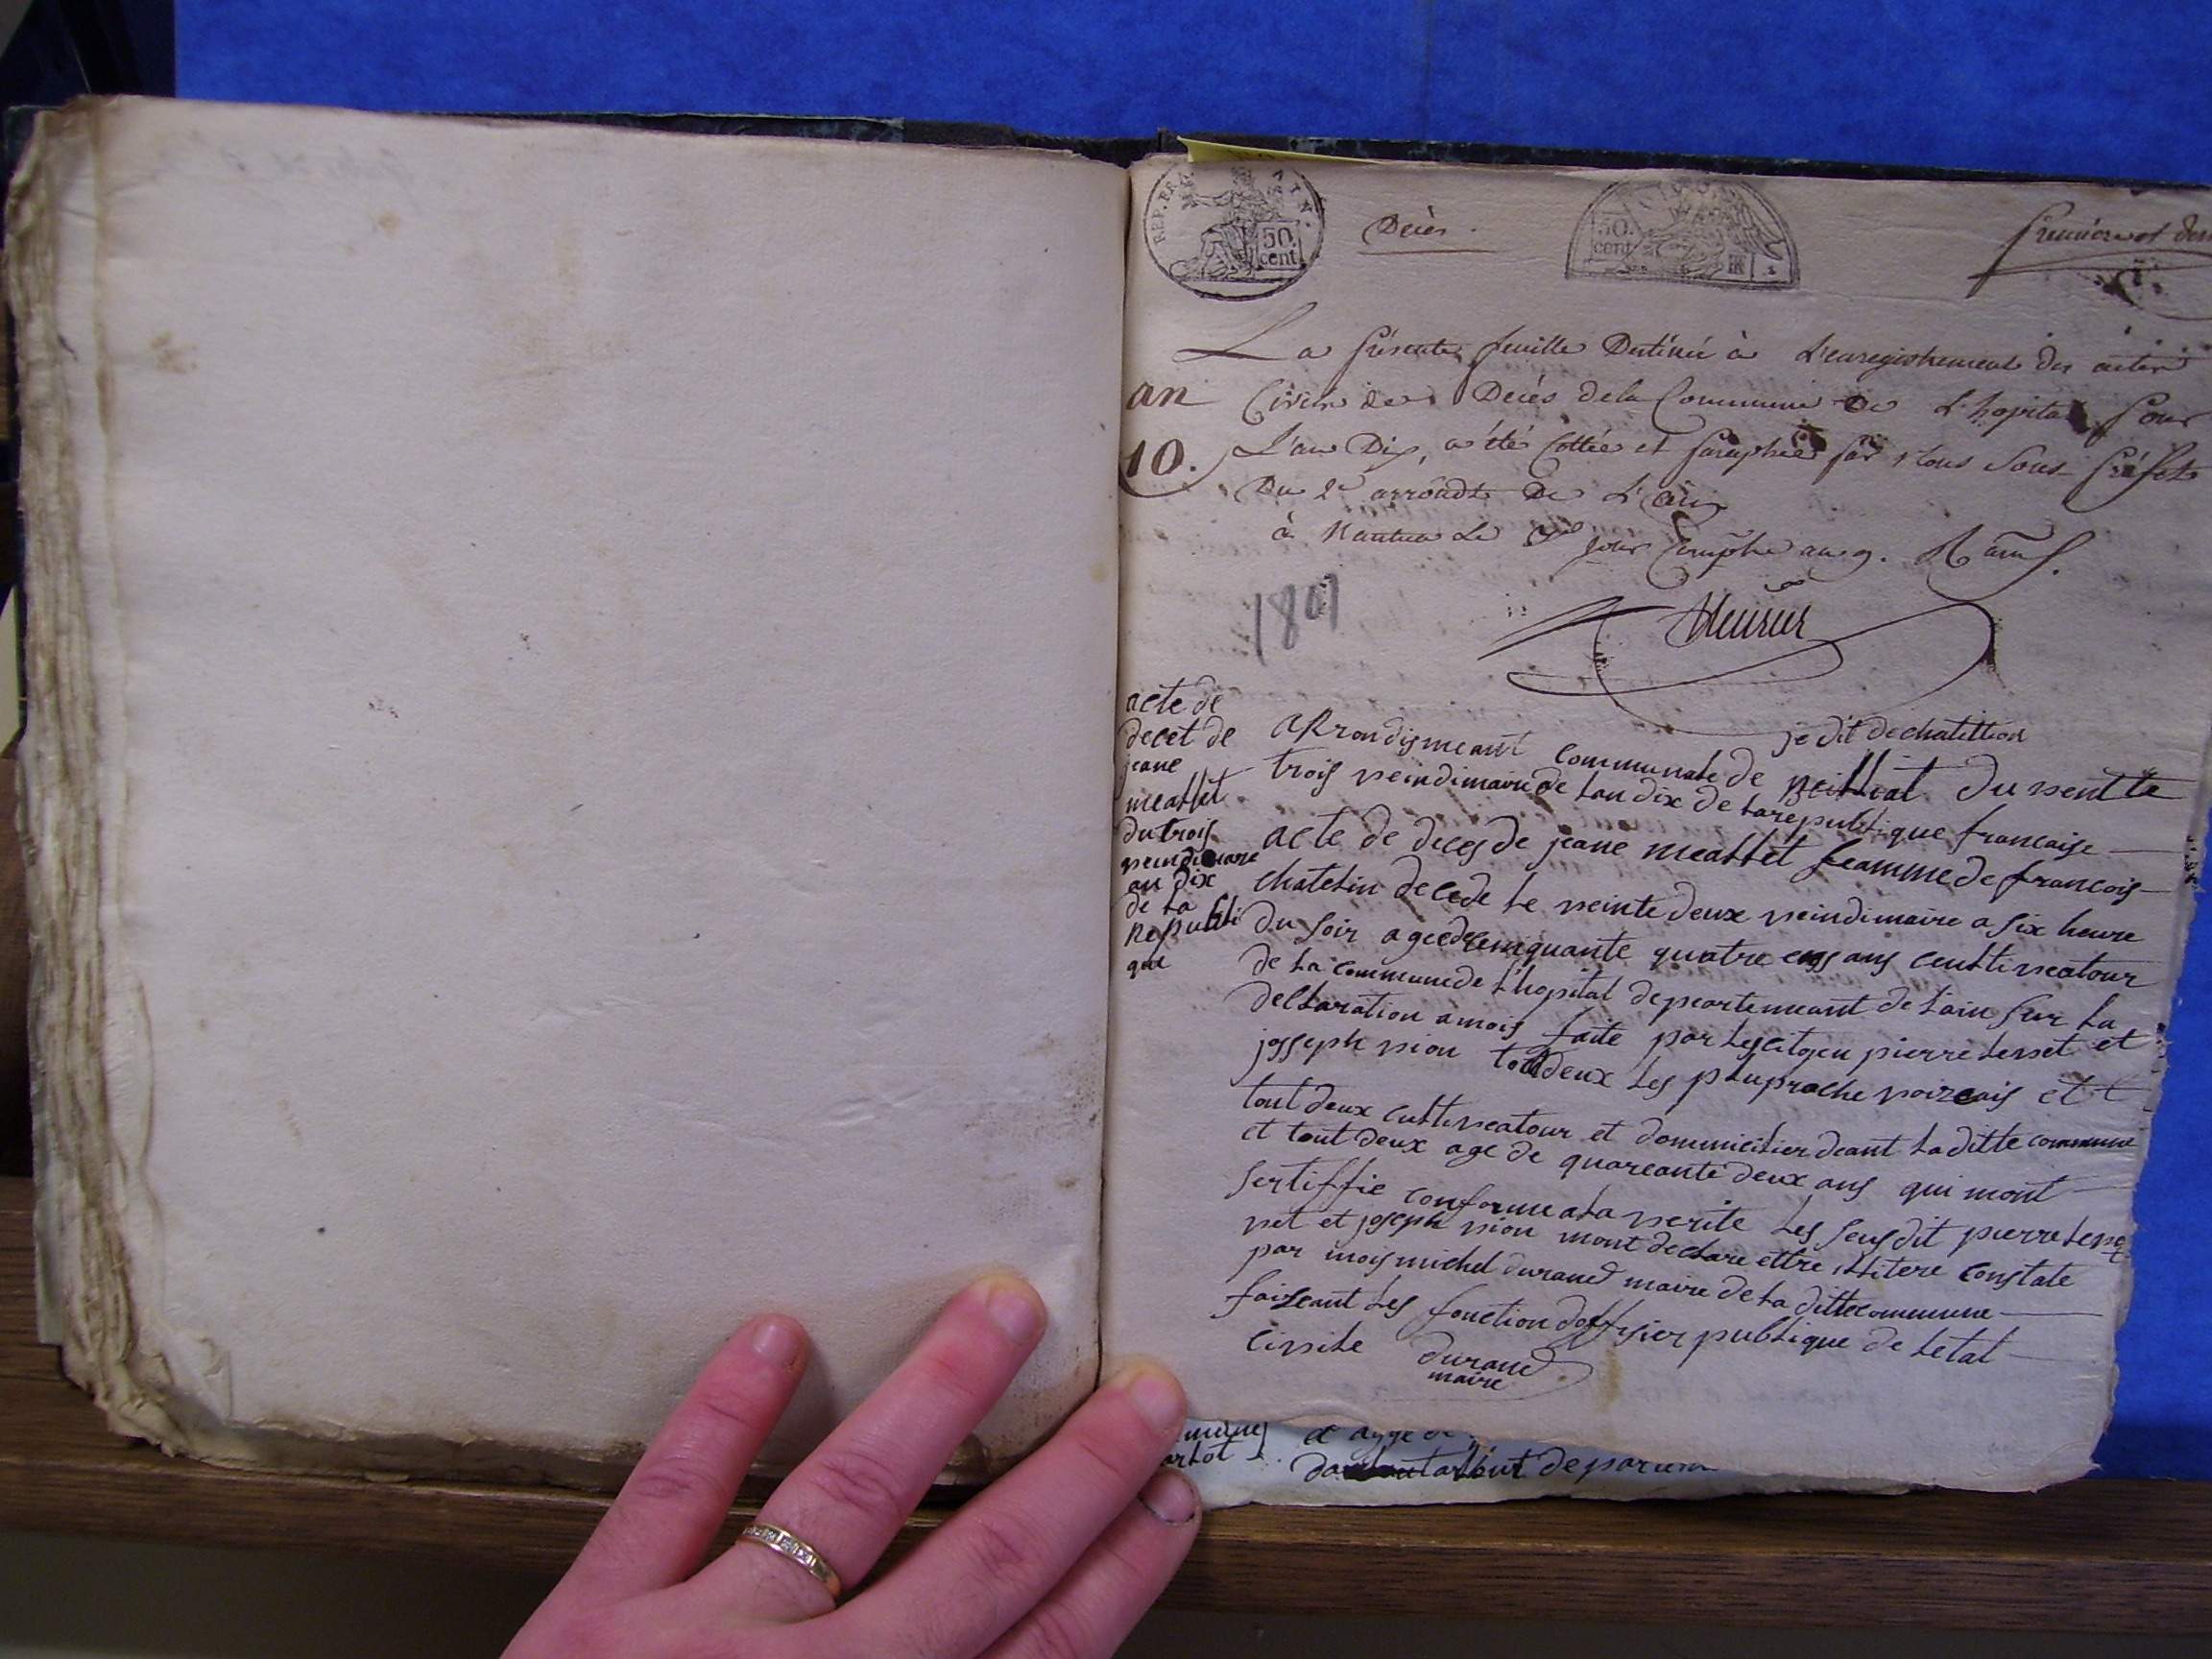 REP. FRA
AIN.
50.
cent
Décès.
50.
cent
Premier et
La présente feuille Destinée à L'enregistrement des actes
an
Civils de Décès de la Commune De L'hopital pour
10.
L'an Dix, a été Cottée et paraphée par Nous Sous Préfet
Du 2e arrondt. De L'ain
à Nantua Le jour Complre. an 9.
1801
je dit de chatillion
acte de
decet de
jeane
meattet
du trois
veindimare
an dix
de la
Republi
que
aRrondisment communale de du vent te
trois veindimaire de lan dix de la republique francaise
acte de deces de jeane meattet feamme de francois
chatelin decede le veinte deux veindimaire a six heure
du soir agee de cinquante quatre ans ceultiveatour
de la commune de l'hopital depeartemeant de lain sur la
declaration a mois faite par les citoyen pierre levet et
josseph vion tout deux les plu proche voizeais et
tout deux cultiveatour et dommicilier deant la ditte commune
et tout deux age de quareante deux ans qui mont
sertiffie conforme a la verite les seus dit pierre leve
vet et joseph vion mont declare ettre illitere constate
par mois michel durand maire de la ditte commune
faizeant les fonction doffisier publique de letat
civile durand
maire
a agge de
de